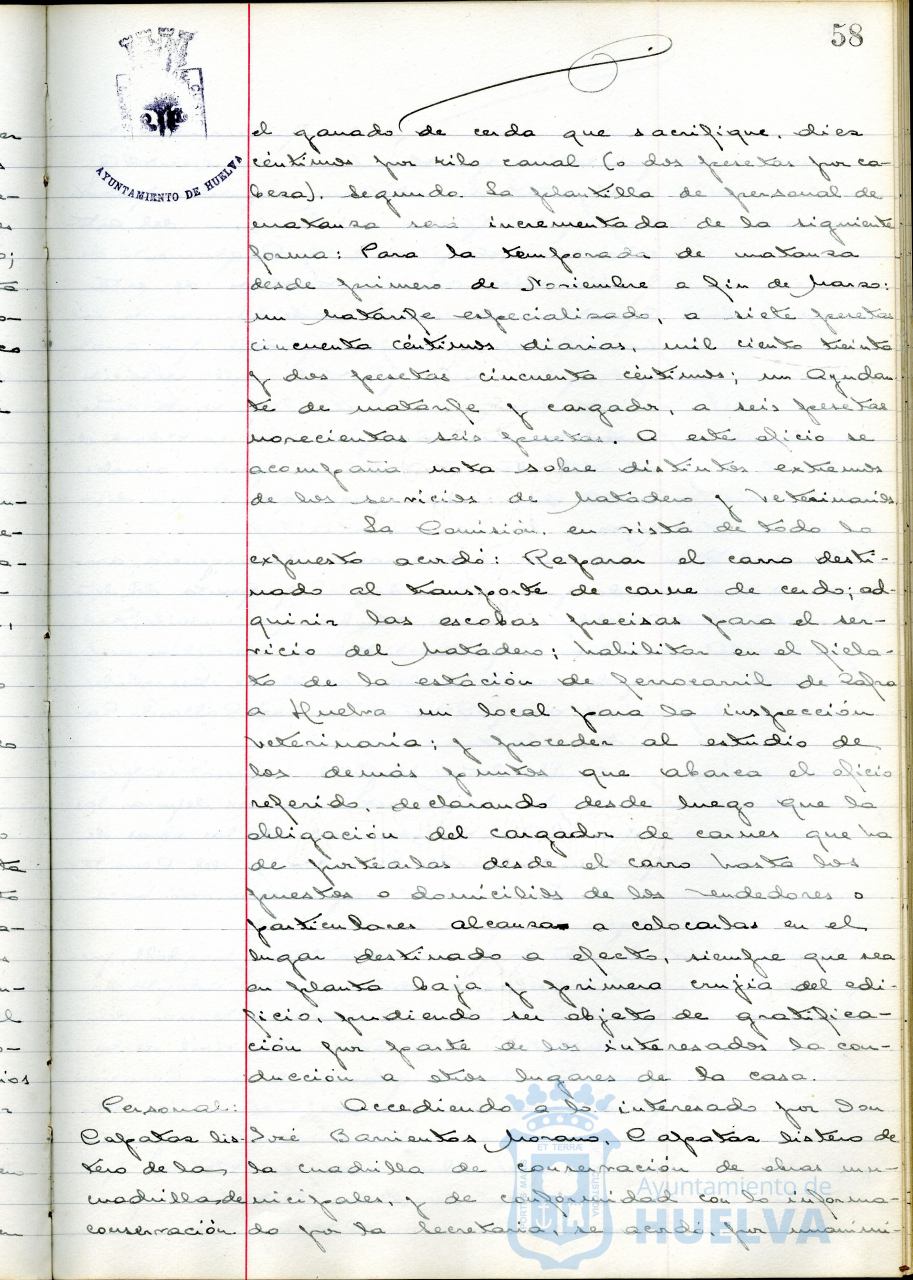 58
AYUNTAMIENTO DE HUELVA
el ganado de cerda que sacrifique, diez
céntimos por kilo canal (o dos pesetas por ca-
beza). Segundo. La plantilla de personal de
matanza será incrementada de la siguiente
forma: Para la temporada de matanza
desde primero de Noviembre a fin de Marzo:
un Matarife especializado, a siete pesetas
cincuenta céntimos diarias, mil ciento treinta
y dos pesetas cincuenta céntimos; un Ayudan-
te de matarife y cargador, a seis pesetas
novecientas seis pesetas. A este oficio se
acompaña nota sobre distintos extremos
de los servicios de Matadero y Veterinarios.
La Comisión, en vista de todo lo
expuesto acordó: Reparar el carro desti-
nado al transporte de carne de cerdo; ad-
quirir las escobas precisas para el ser-
vicio del Matadero; habilitar en el fiela-
to de la estación de ferrocarril de Zafra
a Huelva un local para la inspección
veterinaria; y proceder al estudio de
los demás puntos que abarca el oficio
referido, declarando desde luego que la
obligación del cargador de carnes que ha
de portearlas desde el carro hasta los
puestos o domicilios de los vendedores o
particulares alcanza a colocarlas en el
lugar destinado a efecto, siempre que sea
en planta baja y primera crujía del edi-
ficio, pudiendo ser objeto de gratifica-
ción por parte de los interesados la con-
ducción a otros lugares de la casa.
Personal:
Capataz lis-
tero de la
cuadrilla de
conservación
Accediendo a lo interesado por Don
José Barrientos Morano, Capataz listero de
la cuadrilla de conservación de obras mu-
nicipales, y de conformidad con lo informa-
do por la Secretaría, se acordó, por unanimi-
Ayuntamiento de
HUELVA